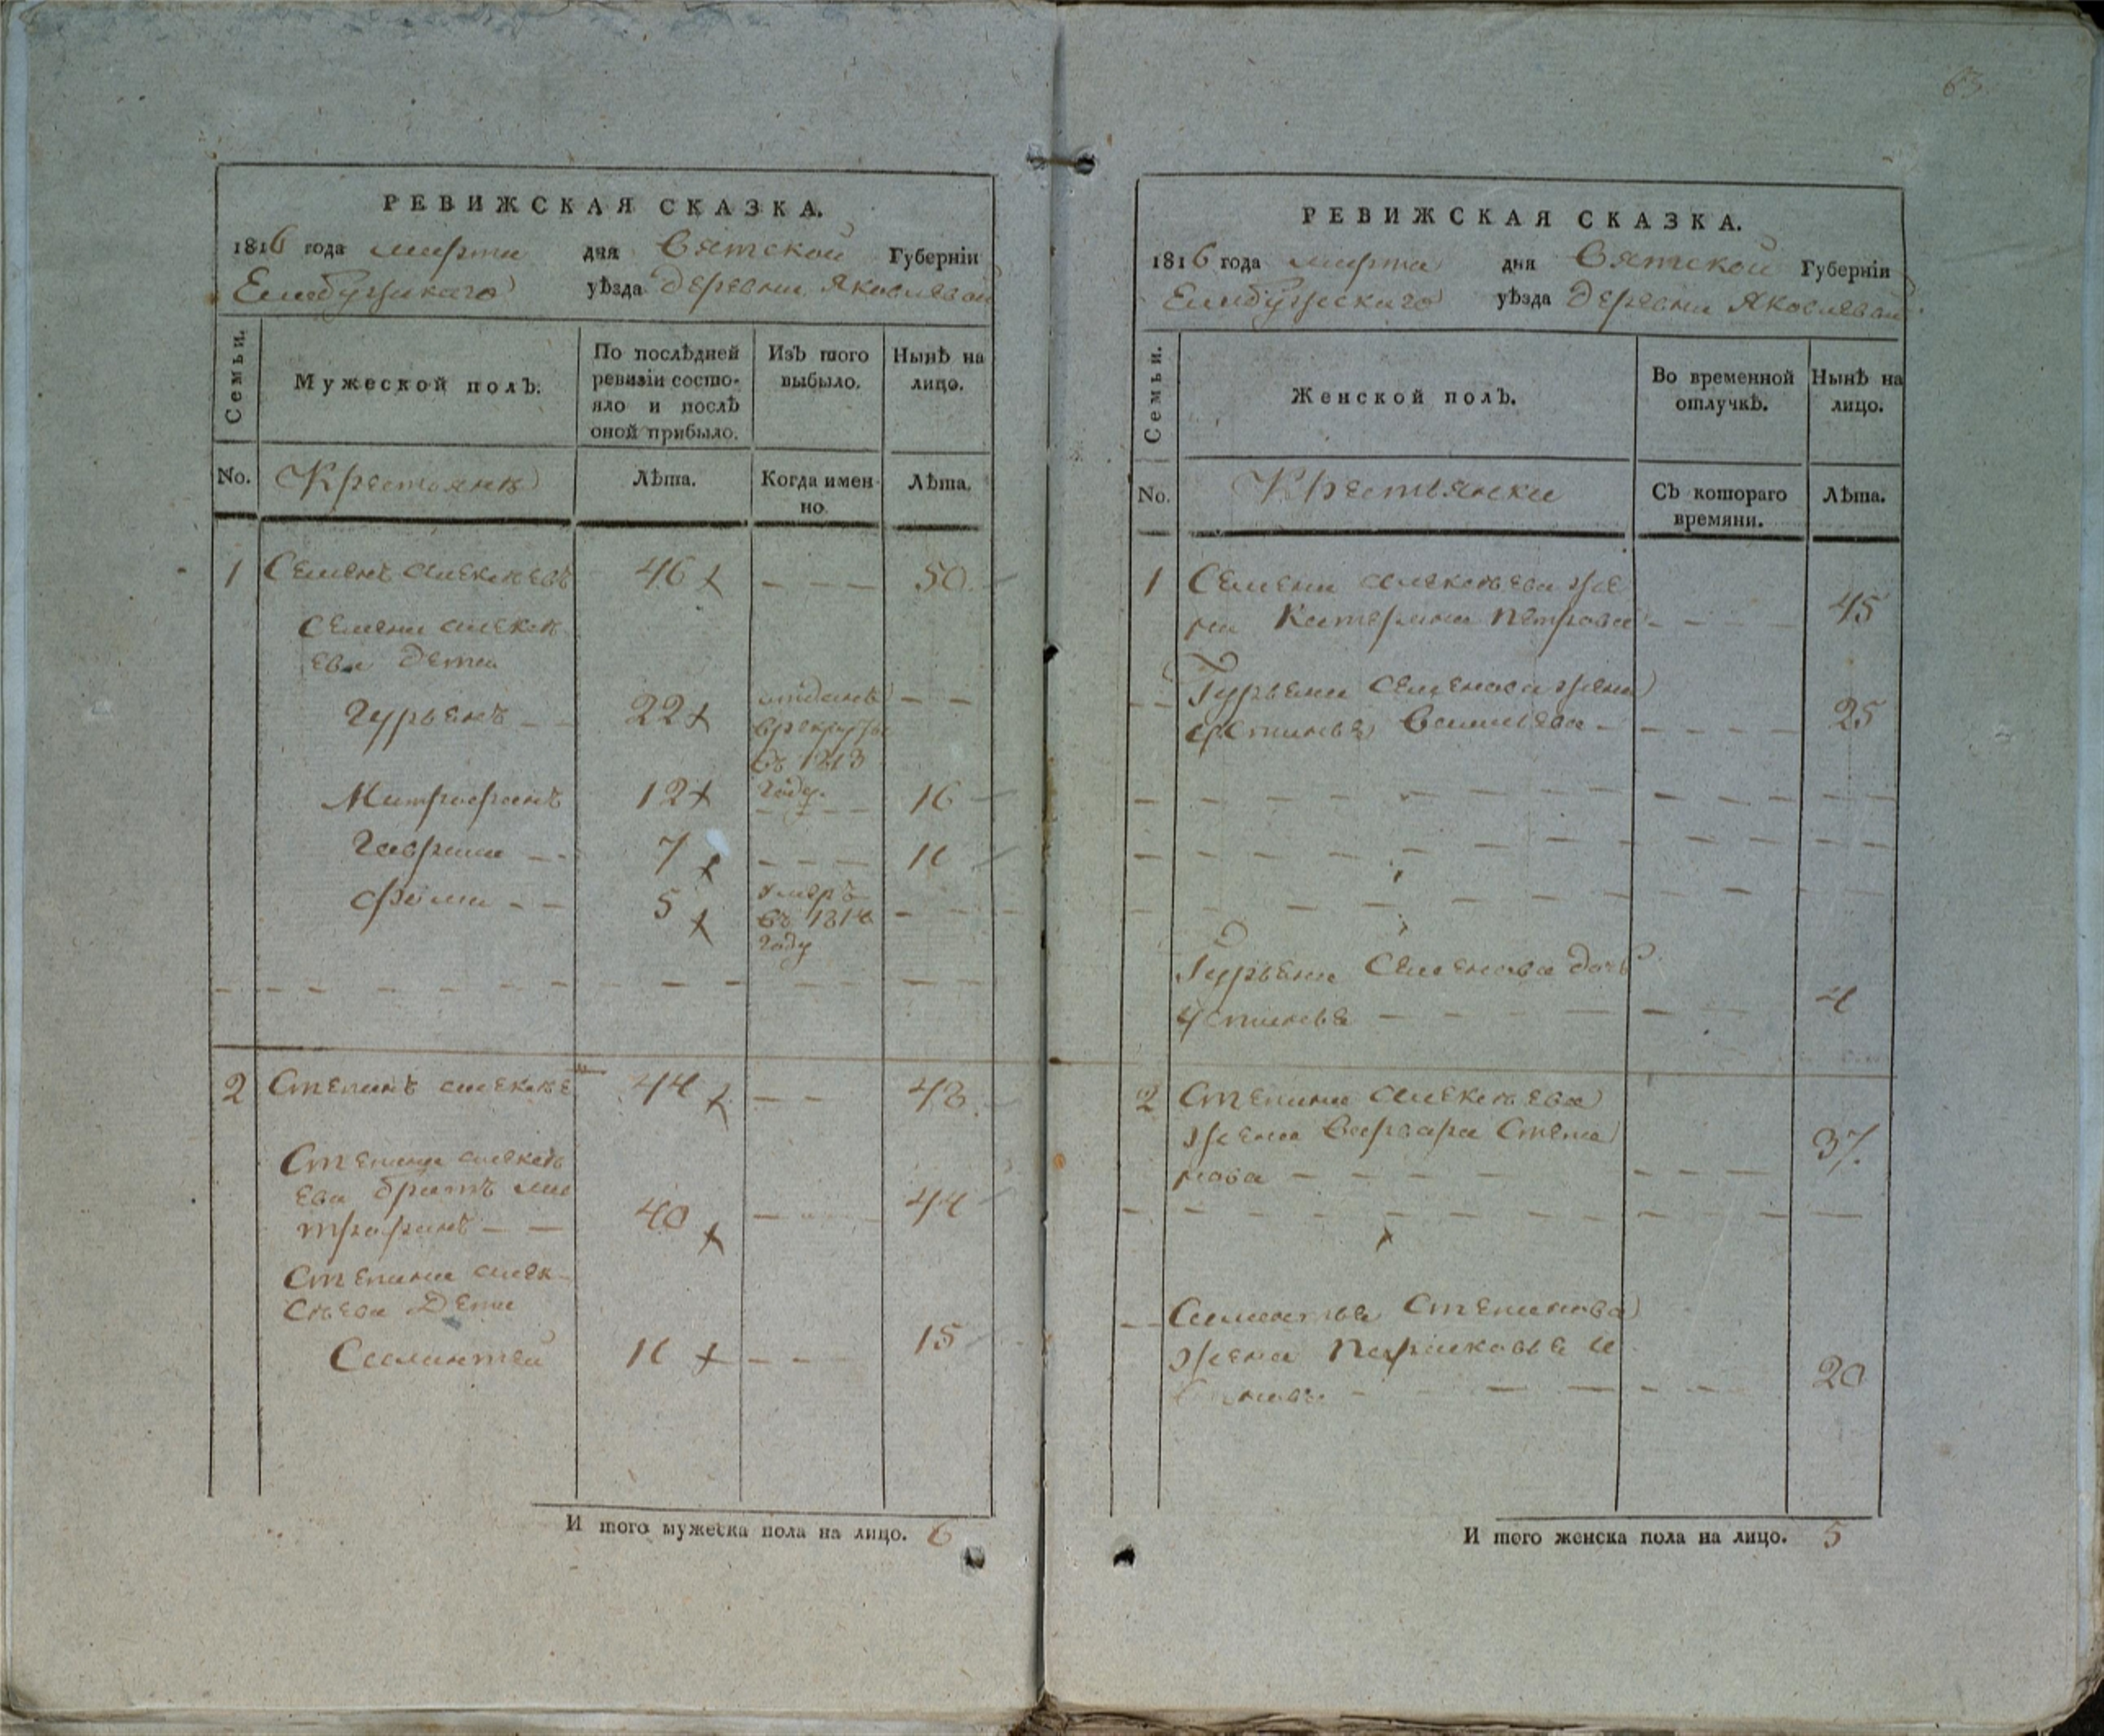 63
РЕВИЖСКАЯ СКАЗКА.
1816 года марта дня Вятской Губерніи
Елабужскаго уѣзда деревни Яковлевой
Семьи.
Мужеской полъ.
По послѣдней ревизіи состо-
яло и послѣ
оной прибыло.
Изъ того
выбыло.
Нынѣ на
лицо.
No.
Крестьянъ
Лѣта.
Когда имен-
но.
Лѣта.
1 Семенъ Алексѣевъ 46 — — — 50
Семена Алексѣ
ева дети
Гурьянъ — — 22 отданъ — —
в рекруты
въ 1813
году.
Митрофанъ 12 — — — 16
Гаврила — — 7 — — — 11
Фома — — 5 умеръ — —
въ 1814
году
2 Степанъ Алексѣе 44 — — 48
Степана Алексѣ
ева братъ Ми
трофанъ — — 40 — — 44
Степана Алек
сѣева Дети
11 — — — 15
И того мужеска пола на лицо. 6
РЕВИЖСКАЯ СКАЗКА.
1816 года марта дня Вятской Губерніи
Елабужскаго уѣзда деревни Яковлевой
Семьи.
Женской полъ.
Во временной
отлучкѣ.
Нынѣ на
лицо.
No.
Крестьянки
Съ котораго
времяни.
Лѣта.
1 Семена Алексѣева же
на Катерина Петрова — — — 45
Гурьяна Семенова жена
Васильева — — — — 25
Гурьяна Семенова дочь
Устинья — — — — — 4
2 Степана Алексѣева
жена Варвара Степа
нова — — — — — — — 37
Степанова
жена Парасковья И
20
И того женска пола на лицо. 5